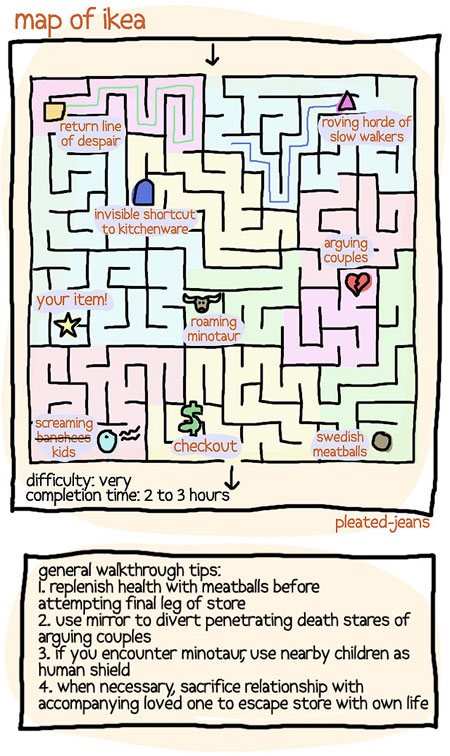 map of ikea
return line
of despair
roving horde of
slow walkers
invisible shortcut
to kitchenware
arguing
couples
your item!
roaming
minotaur
screaming
banshees
kids
checkout
swedish
meatballs
difficulty: very
completion time: 2 to 3 hours
pleated-jeans
general walkthrough tips:
1. replenish health with meatballs before
attempting final leg of store
2. use mirror to divert penetrating death stares of
arguing couples
3. if you encounter minotaur, use nearby children as
human shield
4. when necessary, sacrifice relationship with
accompanying loved one to escape store with own life